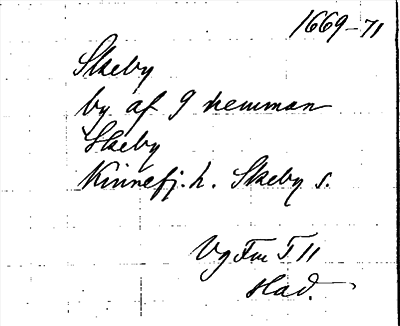 1669-71
Skeby
by af 9 hemman
Skeby
Kinnefj. h. Skeby s.
Vg Fmt 5 11
Had.